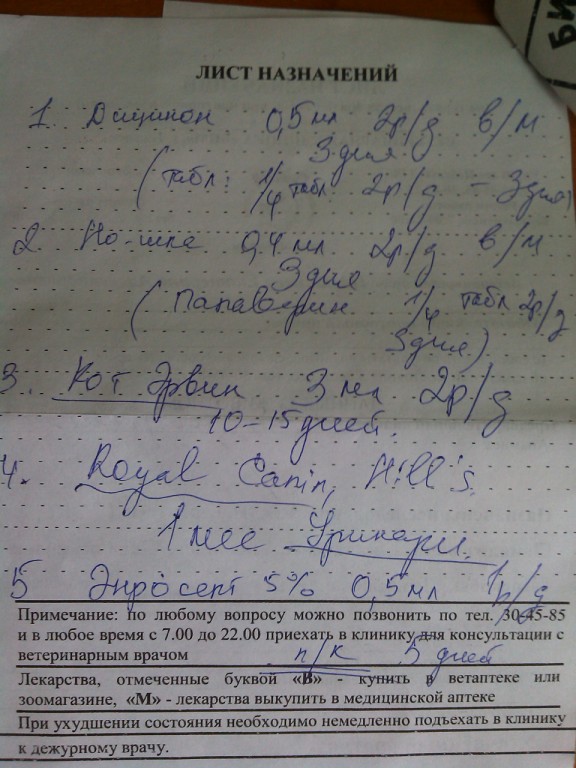 БИ
ЛИСТ НАЗНАЧЕНИЙ
1. Дицинон 0,5 мл 2р/д в/м
3 дня
(табл: 1/4 табл 2р/д - 3 дня)
2 Но-шпа 0,4 мл 2р/д в/м
3 дня
(Папаверин 1/4 табл 2р/д
3 дня)
3. Кот Эрвин 3 мл 2р/д
10-15 дней.
4. Royal Canin, Hill's.
Уринари.
5 Энросепт 5% 0,5 мл 1р/д
Примечание: по любому вопросу можно позвонить по тел. 30-45-85
и в любое время с 7.00 до 22.00 приехать в клинику для консультации с
ветеринарным врачом п/к 5 дней
Лекарства, отмеченные буквой «В» - купить в ветаптеке или
зоомагазине, «М» - лекарства выкупить в медицинской аптеке
При ухудшении состояния необходимо немедленно подъехать в клинику
к дежурному врачу.